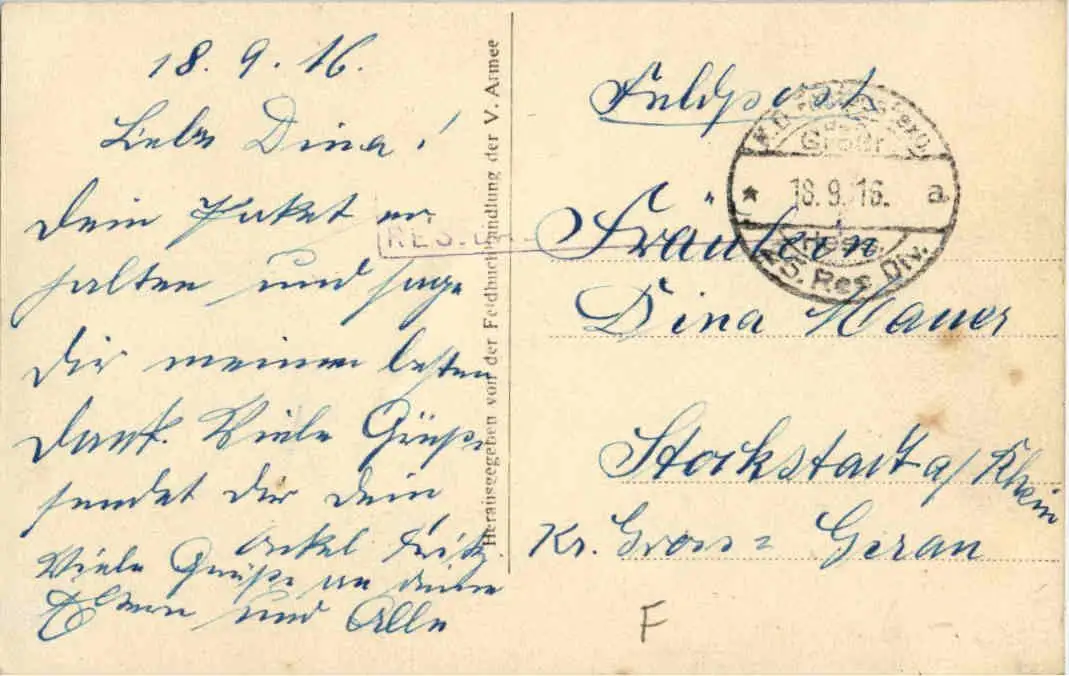 18.9.16.
Liebe Dina!
Dein Paket er
halten und sage
Dir meinen besten
Dank. Viele Grüße
sendet Dir Dein
Onkel Fritz
Viele Grüße an deine
Eltern und Alle
Herausgegeben von der Feldbuchhandlung der V. Armee
RES.
Feldpost
K.D. Feldpostexp.
Großh.
18.9.16. a
Hess.
25. Res. Div.
Fräulein
Dina Mauer
Stockstadt a/Rhein
Kr. Gross=Gerau
F